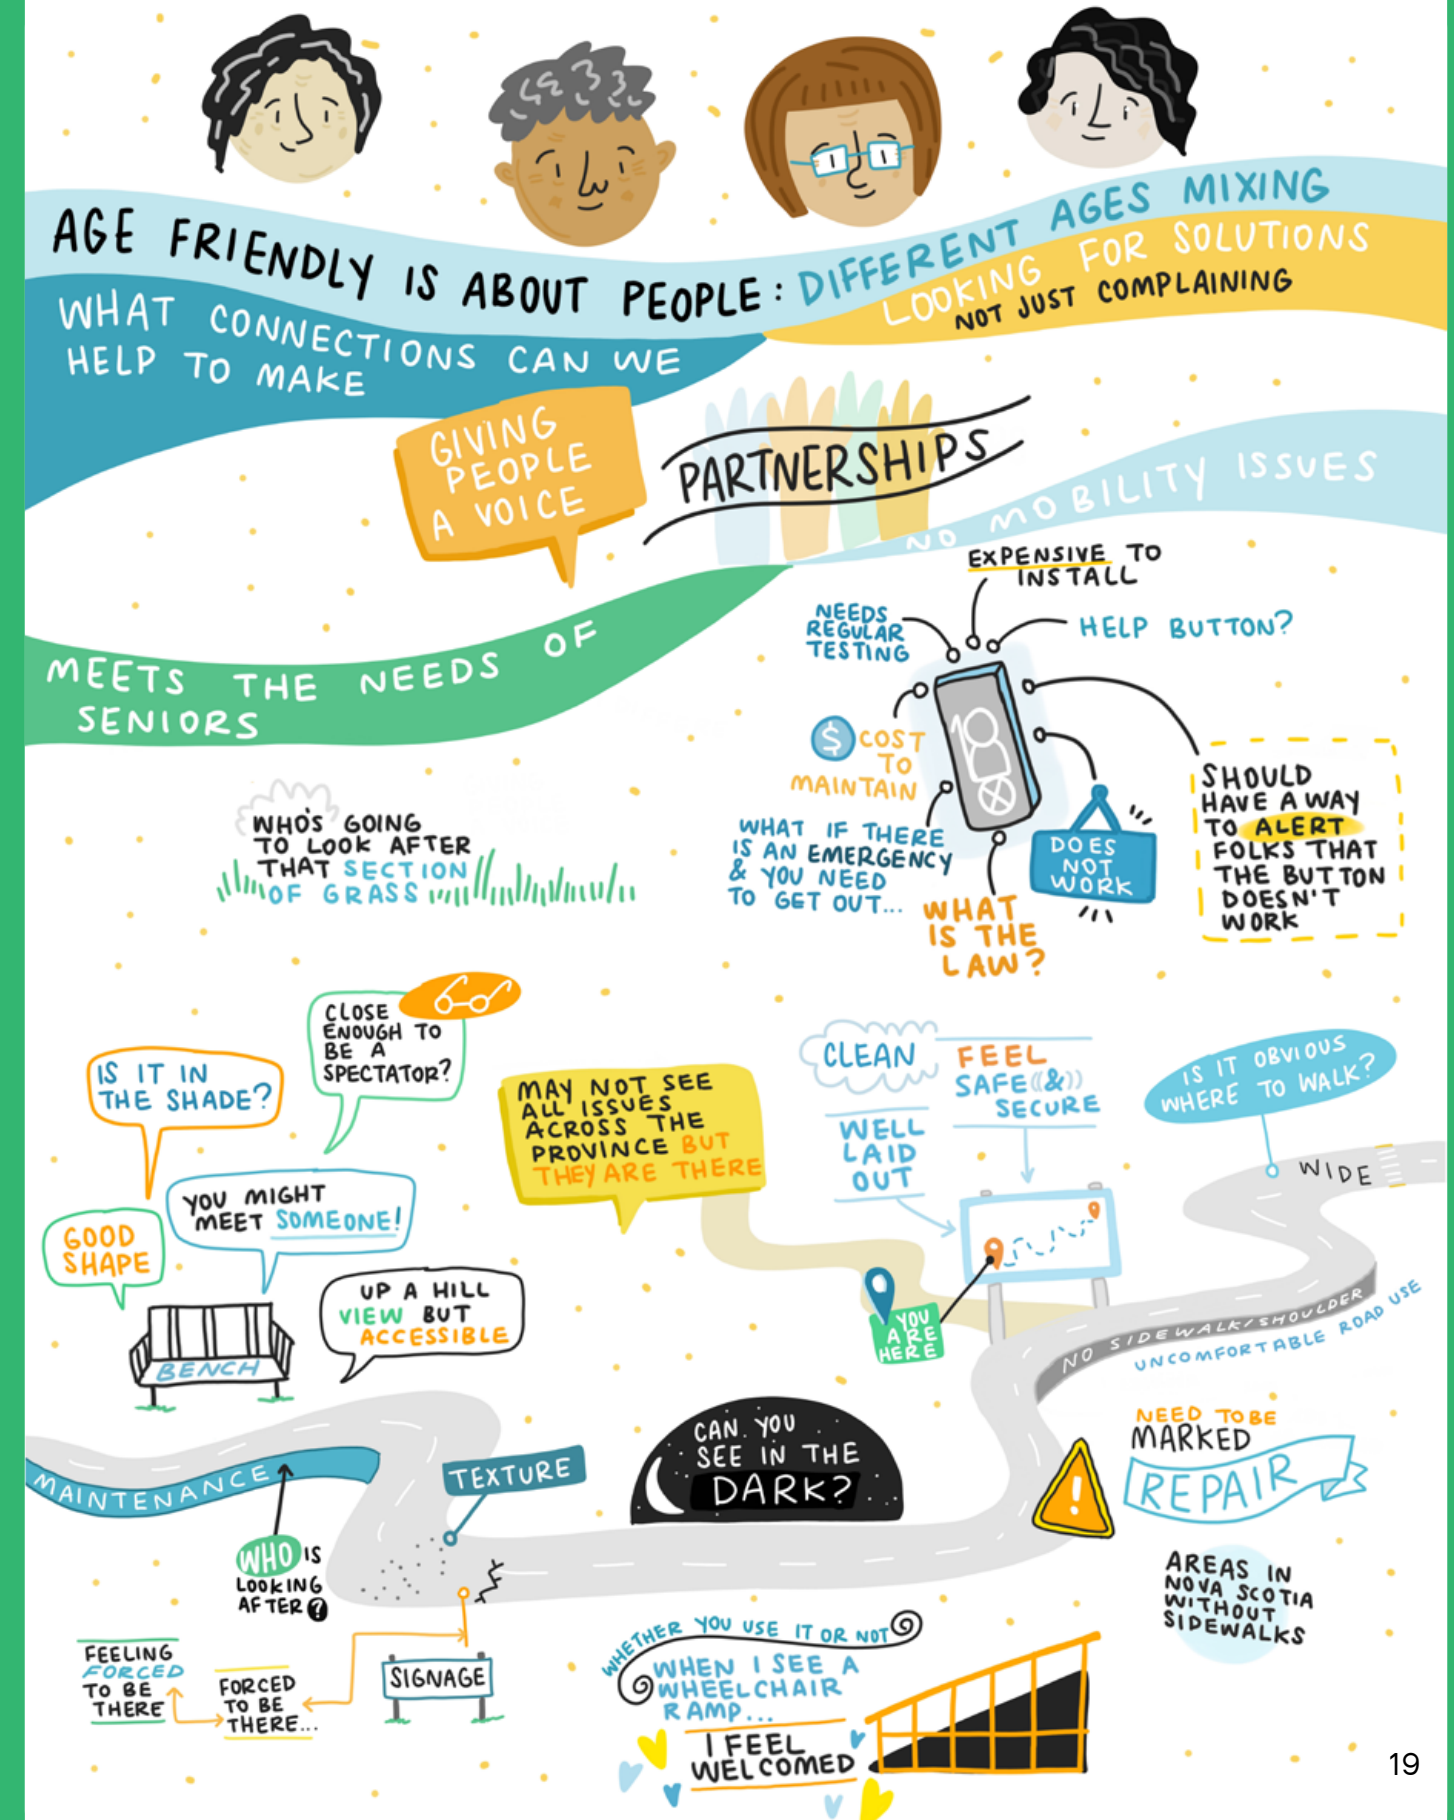 AGE FRIENDLY IS ABOUT PEOPLE: DIFFERENT AGES MIXING
LOOKING FOR SOLUTIONS
NOT JUST COMPLAINING
WHAT CONNECTIONS CAN WE
HELP TO MAKE
GIVING
PEOPLE
A VOICE
PARTNERSHIPS
NO MOBILITY ISSUES
MEETS THE NEEDS OF
SENIORS
EXPENSIVE TO
INSTALL
NEEDS
REGULAR
TESTING
HELP BUTTON?
$ COST
TO
MAINTAIN
WHAT IF THERE
IS AN EMERGENCY
& YOU NEED
TO GET OUT...
WHAT
IS THE
LAW?
DOES
NOT
WORK
SHOULD
HAVE A WAY
TO ALERT
FOLKS THAT
THE BUTTON
DOESN'T
WORK
WHO'S GOING
TO LOOK AFTER
THAT SECTION
OF GRASS
CLOSE
ENOUGH TO
BE A
SPECTATOR?
IS IT IN
THE SHADE?
YOU MIGHT
MEET SOMEONE!
GOOD
SHAPE
UP A HILL
VIEW BUT
ACCESSIBLE
BENCH
MAY NOT SEE
ALL ISSUES
ACROSS THE
PROVINCE BUT
THEY ARE THERE
CLEAN
FEEL
SAFE &
SECURE
WELL
LAID
OUT
IS IT OBVIOUS
WHERE TO WALK?
WIDE
YOU
ARE
HERE
NO SIDEWALK/SHOULDER
UNCOMFORTABLE ROAD USE
MAINTENANCE
WHO IS
LOOKING
AFTER?
TEXTURE
CAN YOU
SEE IN THE
DARK?
!
NEED TO BE
MARKED
REPAIR
AREAS IN
NOVA SCOTIA
WITHOUT
SIDEWALKS
FEELING
FORCED
TO BE
THERE
FORCED
TO BE
THERE...
SIGNAGE
WHETHER YOU USE IT OR NOT
WHEN I SEE A
WHEELCHAIR
RAMP...
I FEEL
WELCOMED
19